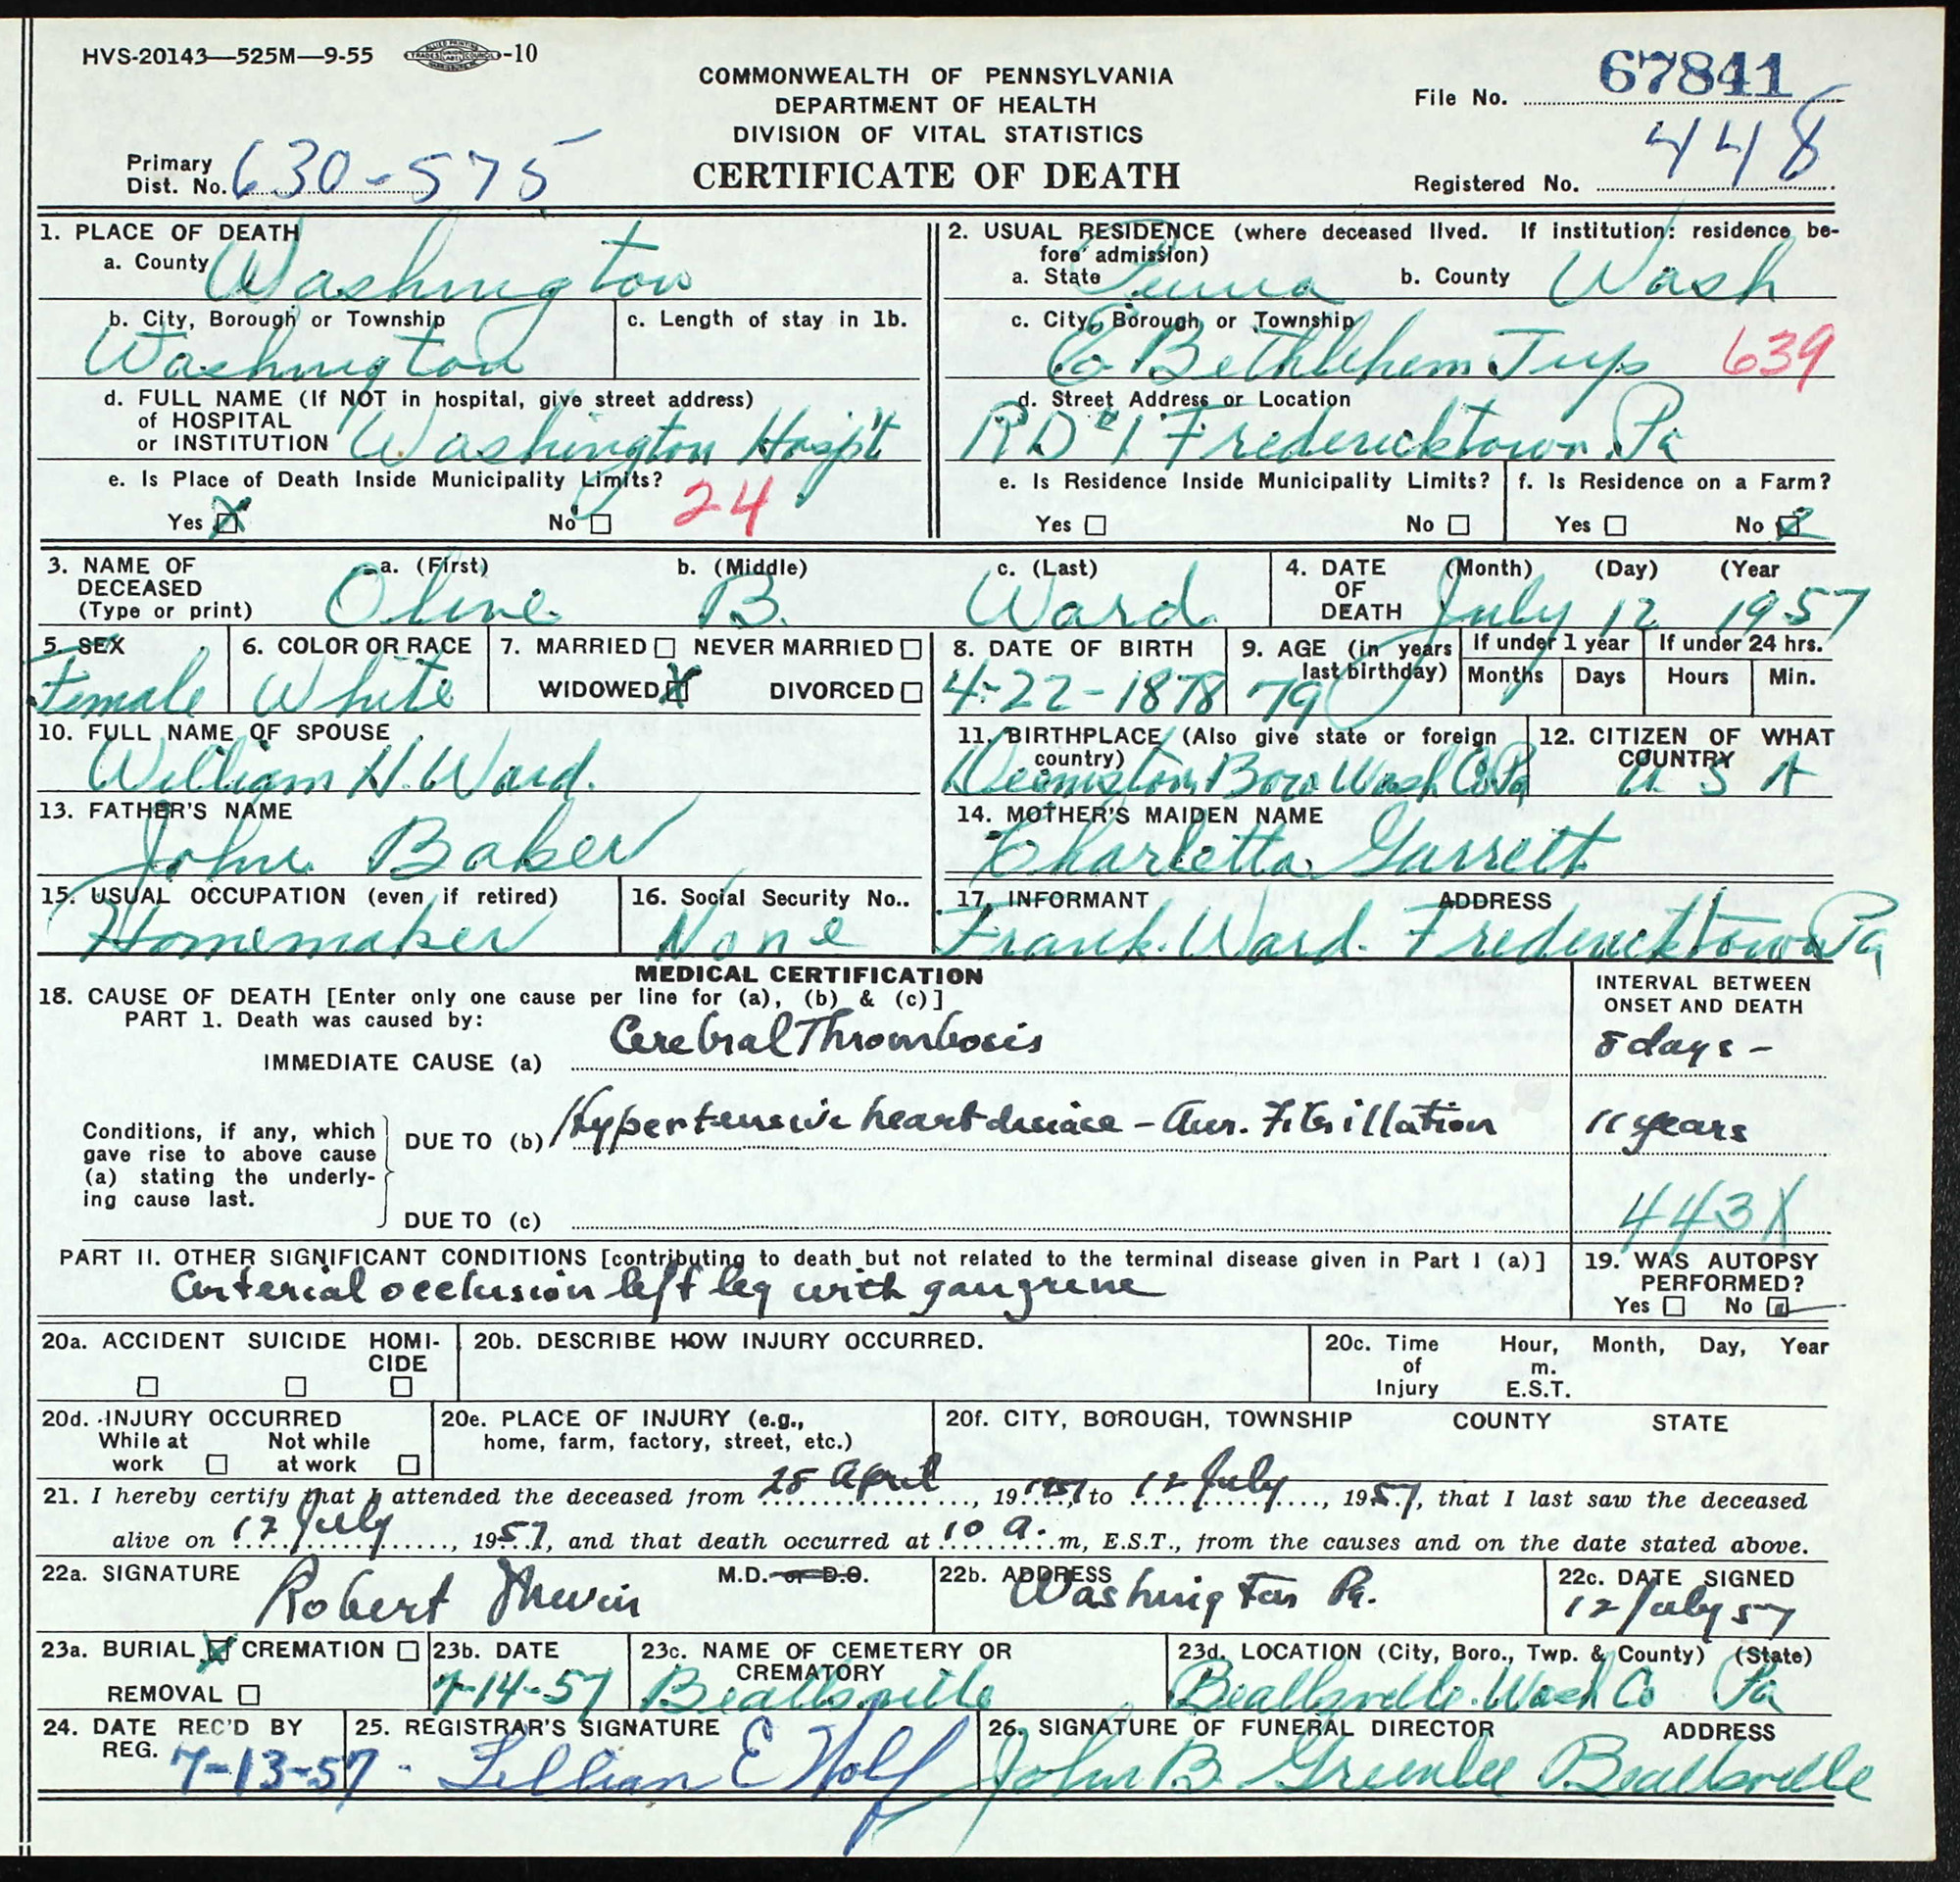 HVS-20143—525M—9-55 -10
COMMONWEALTH OF PENNSYLVANIA
DEPARTMENT OF HEALTH
DIVISION OF VITAL STATISTICS
CERTIFICATE OF DEATH
File No. 67841
Primary
Dist. No. 630-575
Registered No. 448
1. PLACE OF DEATH
a. County Washington
b. City, Borough or Township
Washington
c. Length of stay in 1b.
d. FULL NAME (If NOT in hospital, give street address)
of HOSPITAL
or INSTITUTION Washington Hospit
e. Is Place of Death Inside Municipality Limits? 24
Yes X No
2. USUAL RESIDENCE (where deceased lived. If institution: residence be-
fore admission)
a. State Penna b. County Wash
c. City, Borough or Township
E Bethlehem Twp 639
d. Street Address or Location
RD #1 Fredericktown Pa
e. Is Residence Inside Municipality Limits? f. Is Residence on a Farm?
Yes No Yes No X
3. NAME OF DECEASED (Type or print)
a. (First) b. (Middle) c. (Last)
Olive B. Ward
4. DATE OF DEATH (Month) (Day) (Year
July 12 1957
5. SEX
Female
6. COLOR OR RACE
White
7. MARRIED NEVER MARRIED
WIDOWED X DIVORCED
8. DATE OF BIRTH
4-22-1878
9. AGE (in years last birthday)
79
If under 1 year If under 24 hrs.
Months Days Hours Min.
10. FULL NAME OF SPOUSE
William H. Ward.
11. BIRTHPLACE (Also give state or foreign country)
Boro Wash Co Pa
12. CITIZEN OF WHAT COUNTRY
U S A
13. FATHER'S NAME
John Baker
14. MOTHER'S MAIDEN NAME
Charletta Garrett
15. USUAL OCCUPATION (even if retired)
Homemaker
16. Social Security No..
None
17. INFORMANT ADDRESS
Frank Ward. Fredericktown Pa
MEDICAL CERTIFICATION
18. CAUSE OF DEATH [Enter only one cause per line for (a), (b) & (c)]
INTERVAL BETWEEN
ONSET AND DEATH
PART 1. Death was caused by:
IMMEDIATE CAUSE (a) Cerebral Thrombosis 8 days -
Conditions, if any, which
gave rise to above cause
(a) stating the underly-
ing cause last.
DUE TO (b) Hypertensive heart disease - Aur. Fibrillation 11 years
DUE TO (c) 443X
PART II. OTHER SIGNIFICANT CONDITIONS [contributing to death but not related to the terminal disease given in Part I (a)]
Arterial occlusion left leg with gangrene
19. WAS AUTOPSY
PERFORMED?
Yes No
20a. ACCIDENT SUICIDE HOMI-
CIDE
20b. DESCRIBE HOW INJURY OCCURRED.
20c. Time of Injury Hour, Month, Day, Year
m.
E.S.T.
20d. INJURY OCCURRED
While at work Not while at work
20e. PLACE OF INJURY (e.g.,
home, farm, factory, street, etc.)
20f. CITY, BOROUGH, TOWNSHIP COUNTY STATE
21. I hereby certify that I attended the deceased from 25 April, 19 1957, to 12 July, 1957, that I last saw the deceased
alive on 12 July, 1957, and that death occurred at 10 a. m, E.S.T., from the causes and on the date stated above.
22a. SIGNATURE Robert M.D. or D.O.
22b. ADDRESS
Washington Pa.
22c. DATE SIGNED
12 July 57
23a. BURIAL X CREMATION
REMOVAL
23b. DATE
7-14-57
23c. NAME OF CEMETERY OR
CREMATORY
Beallsville
23d. LOCATION (City, Boro., Twp. & County) (State)
Beallsville. Wash Co Pa
24. DATE REC'D BY
REG. 7-13-57
25. REGISTRAR'S SIGNATURE
Lillian E Wolf
26. SIGNATURE OF FUNERAL DIRECTOR ADDRESS
John B Greenlee Beallsville